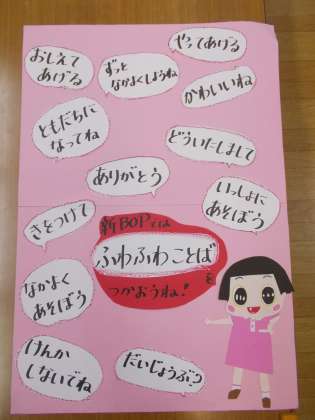 やってあげる
おしえて
あげる
ずっと
なかよくしようね
かわいいね
ともだちに
なってね
どういたしまして
ありがとう
いっしょに
あそぼう
きをつけて
新BOPでは
ふわふわことば
を
つかおうね!
なかよく
あそぼう
けんか
しないでね
だいじょうぶ?